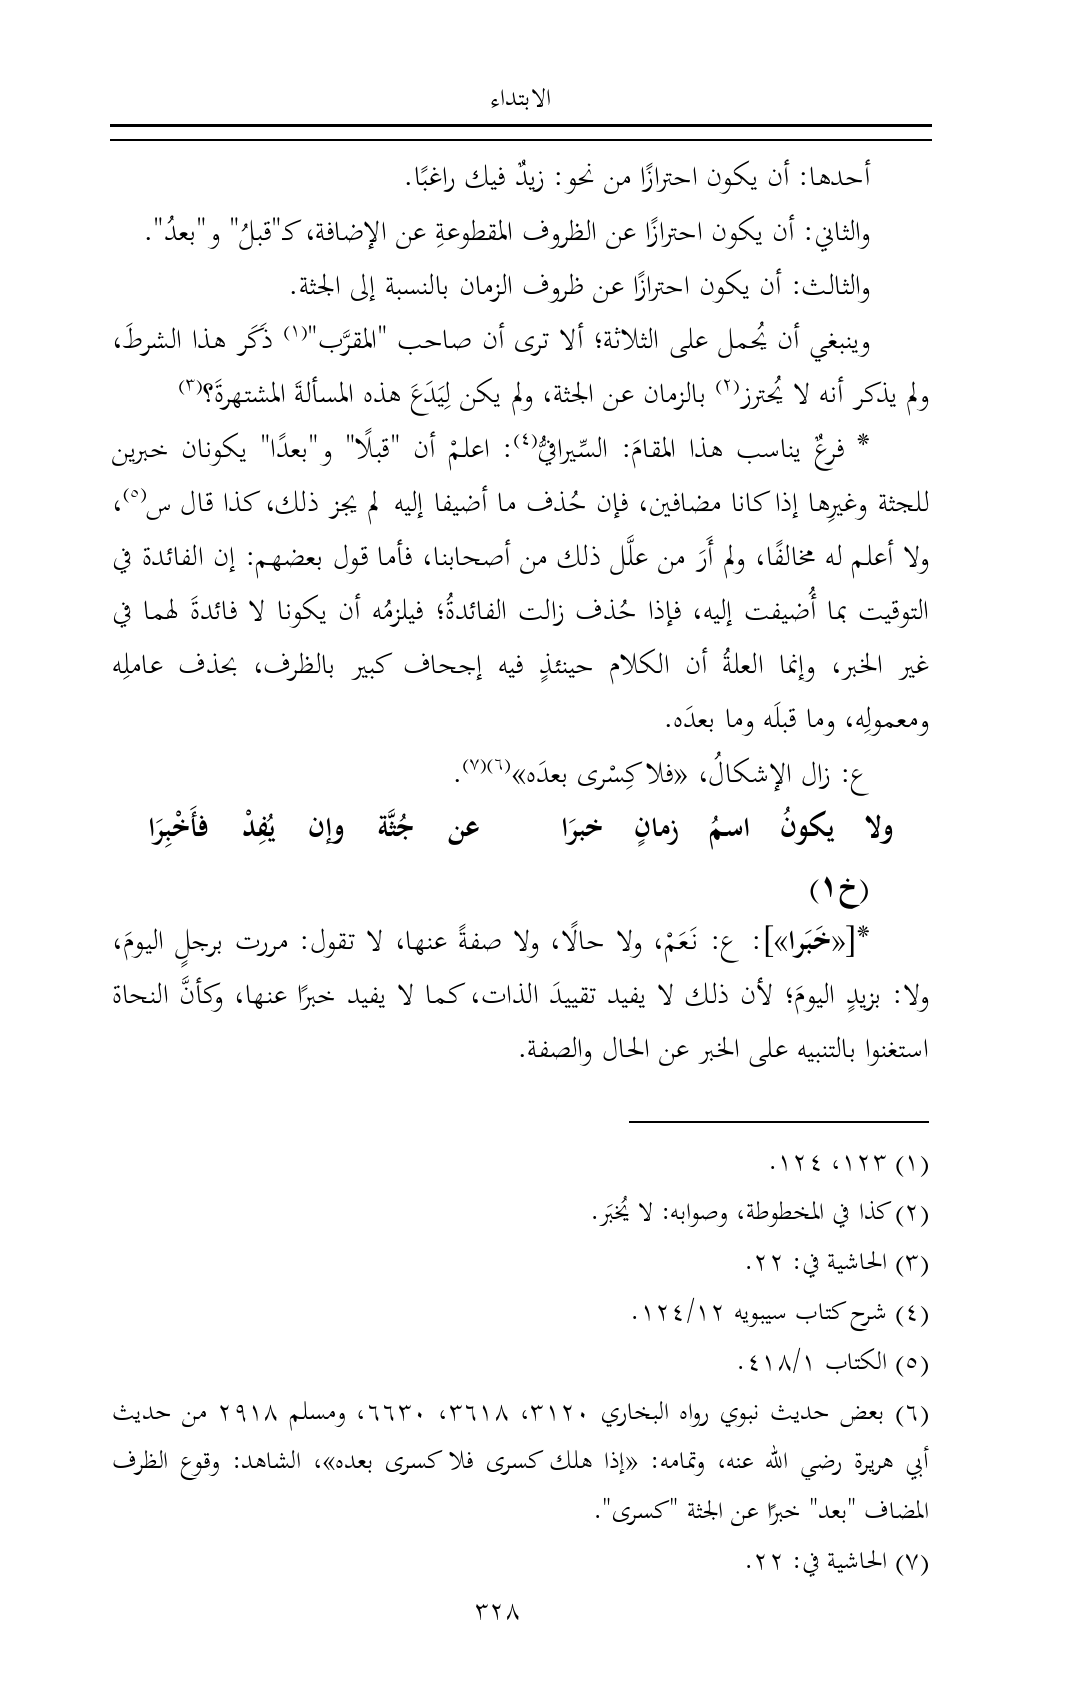 الابتداء
أحدها: أن يكون احترازًا من نحو: زيدٌ فيك راغبًا.
والثاني: أن يكون احترازًا عن الظروف المقطوعةِ عن الإضافة، كـ"قبلُ" و"بعدُ".
والثالث: أن يكون احترازًا عن ظروف الزمان بالنسبة إلى الجثة.
وينبغي أن يُحمل على الثلاثة؛ ألا ترى أن صاحب "المقرَّب"(١) ذَكَر هذا الشرطَ،
ولم يذكر أنه لا يُحترز(٢) بالزمان عن الجثة، ولم يكن لِيَدَعَ هذه المسألةَ المشتهرةَ؟(٣)
* فرعٌ يناسب هذا المقامَ: السِّيرافيُّ(٤): اعلمْ أن "قبلًا" و"بعدًا" يكونان خبرين
للجثة وغيرِها إذا كانا مضافين، فإن حُذف ما أضيفا إليه لم يجز ذلك، كذا قال س(٥)،
ولا أعلم له مخالفًا، ولم أَرَ من علَّل ذلك من أصحابنا، فأما قول بعضهم: إن الفائدة في
التوقيت بما أُضيفت إليه، فإذا حُذف زالت الفائدةُ؛ فيلزمُه أن يكونا لا فائدةَ لهما في
غير الخبر، وإنما العلةُ أن الكلام حينئذٍ فيه إجحاف كبير بالظرف، بحذف عاملِه
ومعمولِه، وما قبلَه وما بعدَه.
ع: زال الإشكالُ، «فلا كِسْرى بعدَه»(٦)(٧).
ولا يكونُ اسمُ زمانٍ خبرَا عن جُثَّة وإن يُفِدْ فأَخْبِرَا
(خ١)
*[«خَبَرا»]: ع: نَعَمْ، ولا حالًا، ولا صفةً عنها، لا تقول: مررت برجلٍ اليومَ،
ولا: بزيدٍ اليومَ؛ لأن ذلك لا يفيد تقييدَ الذات، كما لا يفيد خبرًا عنها، وكأنَّ النحاة
استغنوا بالتنبيه على الخبر عن الحال والصفة.
(١) ١٢٣، ١٢٤.
(٢) كذا في المخطوطة، وصوابه: لا يُخبَر.
(٣) الحاشية في: ٢٢.
(٤) شرح كتاب سيبويه ١٢٤/١٢.
(٥) الكتاب ٤١٨/١.
(٦) بعض حديث نبوي رواه البخاري ٣١٢٠، ٣٦١٨، ٦٦٣٠، ومسلم ٢٩١٨ من حديث
أبي هريرة رضي الله عنه، وتمامه: «إذا هلك كسرى فلا كسرى بعده»، الشاهد: وقوع الظرف
المضاف "بعد" خبرًا عن الجثة "كسرى".
(٧) الحاشية في: ٢٢.
٣٢٨